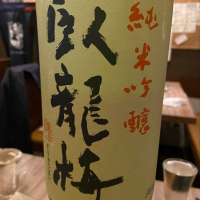 純米吟醸
臥龍梅